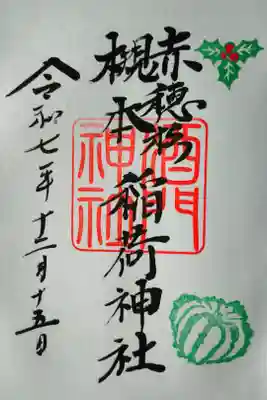 赤穂杉
槻本稲荷神社
令和七年十二月十五日
酒門神社